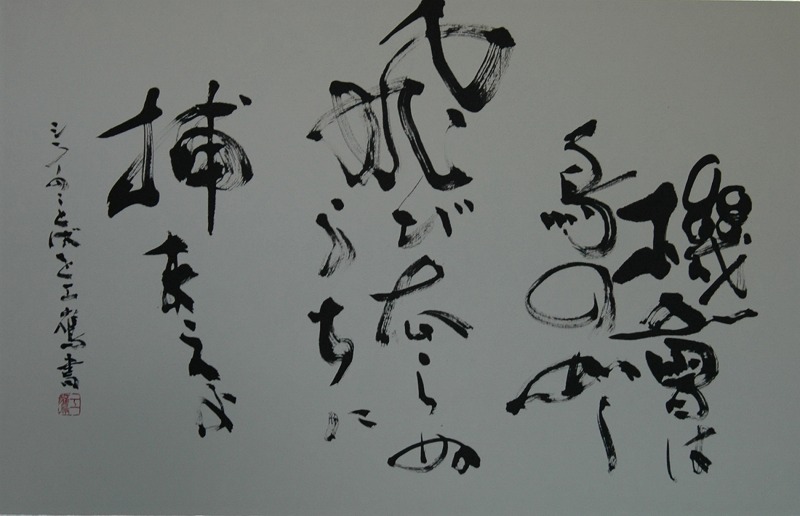 機會は
鳥の如し
飛び去らぬ
うちに
捕まえよ
シラーのことばを工鷹書